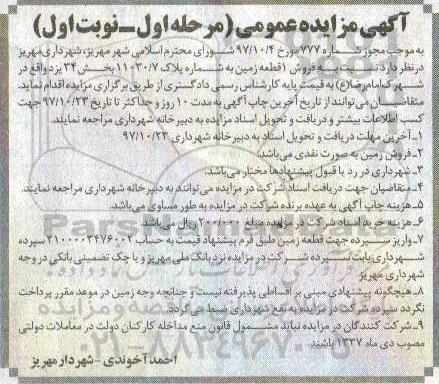 آگهی مزایده عمومی (مرحله اول - نوبت اول)
به موجب مجوز شماره ۷۷۷ مورخ ۹۷/۱۰/۴ شورای محترم اسلامی شهر مهریز، شهرداری مهریز
در نظر دارد نسبت به فروش ۱ قطعه زمین به شماره پلاک ۱۱۰۳۰۷ بخش ۳۴ یزد واقع در
شهرک امام رضا(ع) به قیمت پایه کارشناس رسمی دادگستری از طریق برگزاری مزایده اقدام نماید.
متقاضیان می توانند از تاریخ آخرین چاپ آگهی به مدت ۱۰ روز و حداکثر تا تاریخ ۹۷/۱۰/۲۳ جهت
کسب اطلاعات بیشتر و دریافت و تحویل اسناد مزایده به دبیرخانه شهرداری مراجعه نمایند.
۱- آخرین مهلت دریافت و تحویل اسناد به دبیرخانه شهرداری ۹۷/۱۰/۲۳
۲- فروش زمین به صورت نقدی می باشد.
۳- شهرداری در رد یا قبول پیشنهادها مختار می باشد.
۴- متقاضیان جهت دریافت اسناد شرکت در مزایده می توانند به دبیرخانه شهرداری مراجعه نمایند.
۵- هزینه چاپ آگهی به عهده برنده شرکت در مزایده به طور مساوی می باشد.
۶- هزینه خرید اسناد شرکت در مزایده مبلغ ۲۰۰/۰۰۰ ریال می باشد.
۷- واریز سپرده جهت قطعه زمین طبق فرم پیشنهاد قیمت به حساب ۲۱۰۰۰۰۳۴۷۶۰۰۲ سپرده
شهرداری بابت سپرده شرکت در مزایده نزد بانک ملی مهریز و یا چک تضمینی بانکی در وجه
شهرداری مهریز
۸- هیچگونه پیشنهادی مبنی بر اقساطی پذیرفته نیست و چنانچه وجه زمین در موعد مقرر پرداخت
نگردد سپرده شرکت در مزایده به نفع شهرداری ضبط می گردد.
۹- شرکت کنندگان در مزایده نباید مشمول قانون منع مداخله کارکنان دولت در معاملات دولتی
مصوب دی ماه ۱۳۳۷ باشند
احمد آخوندی - شهردار مهریز
۰۲۱-۸۸۳۴۹۶۷۰-۵